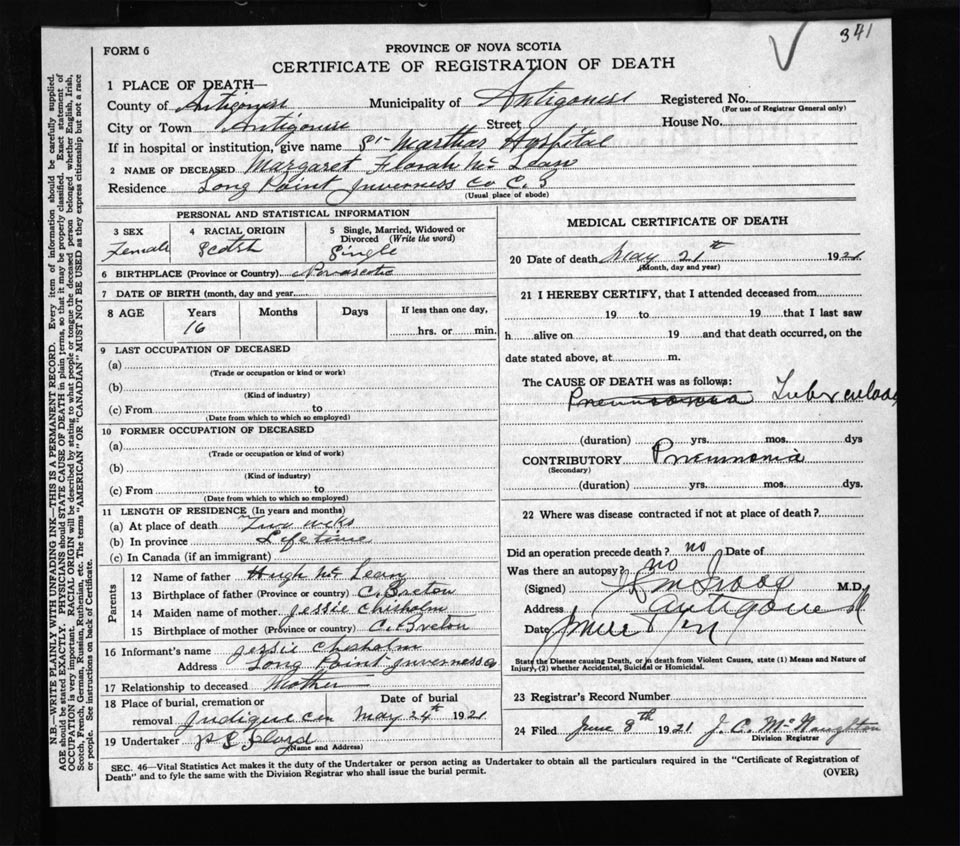 341
FORM 6
PROVINCE OF NOVA SCOTIA
CERTIFICATE OF REGISTRATION OF DEATH
1 PLACE OF DEATH—
County of Antigonish Municipality of Antigonish Registered No.
(For use of Registrar General only)
City or Town Antigonish Street House No.
If in hospital or institution, give name St Marthas Hospital
2 NAME OF DECEASED Margaret Florah Mc Lean
Residence Long Point Inverness Co C. B
(Usual place of abode)
PERSONAL AND STATISTICAL INFORMATION
3 SEX 4 RACIAL ORIGIN 5 Single, Married, Widowed or Divorced (Write the word)
Female Scotch Single
6 BIRTHPLACE (Province or Country) Nova Scotia
7 DATE OF BIRTH (month, day and year
8 AGE Years Months Days If less than one day,
16 hrs. or min.
9 LAST OCCUPATION OF DECEASED
(a)
(Trade or occupation or kind or work)
(b)
(Kind of industry)
(c) From to
(Date from which to which so employed)
10 FORMER OCCUPATION OF DECEASED
(a)
(Trade or occupation or kind of work)
(b)
(Kind of industry)
(c) From to
(Date from which to which so employed)
11 LENGTH OF RESIDENCE (In years and months)
(a) At place of death Two weks
(b) In province Lifetime
(c) In Canada (if an immigrant)
Parents
12 Name of father Hugh Mc Lean
13 Birthplace of father (Province or country) C. Breton
14 Maiden name of mother Jessie Chisholm
15 Birthplace of mother (Province or country) C. Breton
16 Informant's name Jessie Chisholm
Address Long Point Inverness Co
17 Relationship to deceased Mother
18 Place of burial, cremation or Date of burial
removal Judique Cem May 24th 1921
19 Undertaker
(Name and Address)
MEDICAL CERTIFICATE OF DEATH
20 Date of death May 21th 1921
(Month, day and year)
21 I HEREBY CERTIFY, that I attended deceased from
19 to 19 that I last saw
h alive on 19 and that death occurred, on the
date stated above, at m.
The CAUSE OF DEATH was as follows:
Pneumonia Tuberculosis
(duration) yrs. mos. dys
CONTRIBUTORY Pneumonia
(Secondary)
(duration) yrs. mos. dys.
22 Where was disease contracted if not at place of death?
Did an operation precede death? no Date of
Was there an autopsy? no
(Signed) M.D.
Address Antigonish
Date
State the Disease causing Death, or in death from Violent Causes, state (1) Means and Nature of
Injury, (2) whether Accidental, Suicidal or Homicidal.
23 Registrar's Record Number
24 Filed June 8th 1921 J. C. McNaughton
Division Registrar
SEC. 46—Vital Statistics Act makes it the duty of the Undertaker or person acting as Undertaker to obtain all the particulars required in the "Certificate of Registration of
Death" and to fyle the same with the Division Registrar who shall issue the burial permit.
(OVER)
N.B.—WRITE PLAINLY WITH UNFADING INK—THIS IS A PERMANENT RECORD. Every item of information should be carefully supplied.
AGE should be stated EXACTLY. PHYSICIANS should STATE CAUSE OF DEATH in plain terms, so that it may be properly classified. Exact statement of
OCCUPATION is very important. RACIAL ORIGIN will be described by stating to what people or tongue the deceased person belonged whether English, Irish,
Scotch, French, German, Russian, Ruthenian, etc. The terms "AMERICAN" OR "CANADIAN" MUST NOT BE USED as they express citizenship but not a race
or people. See instructions on back of Certificate.